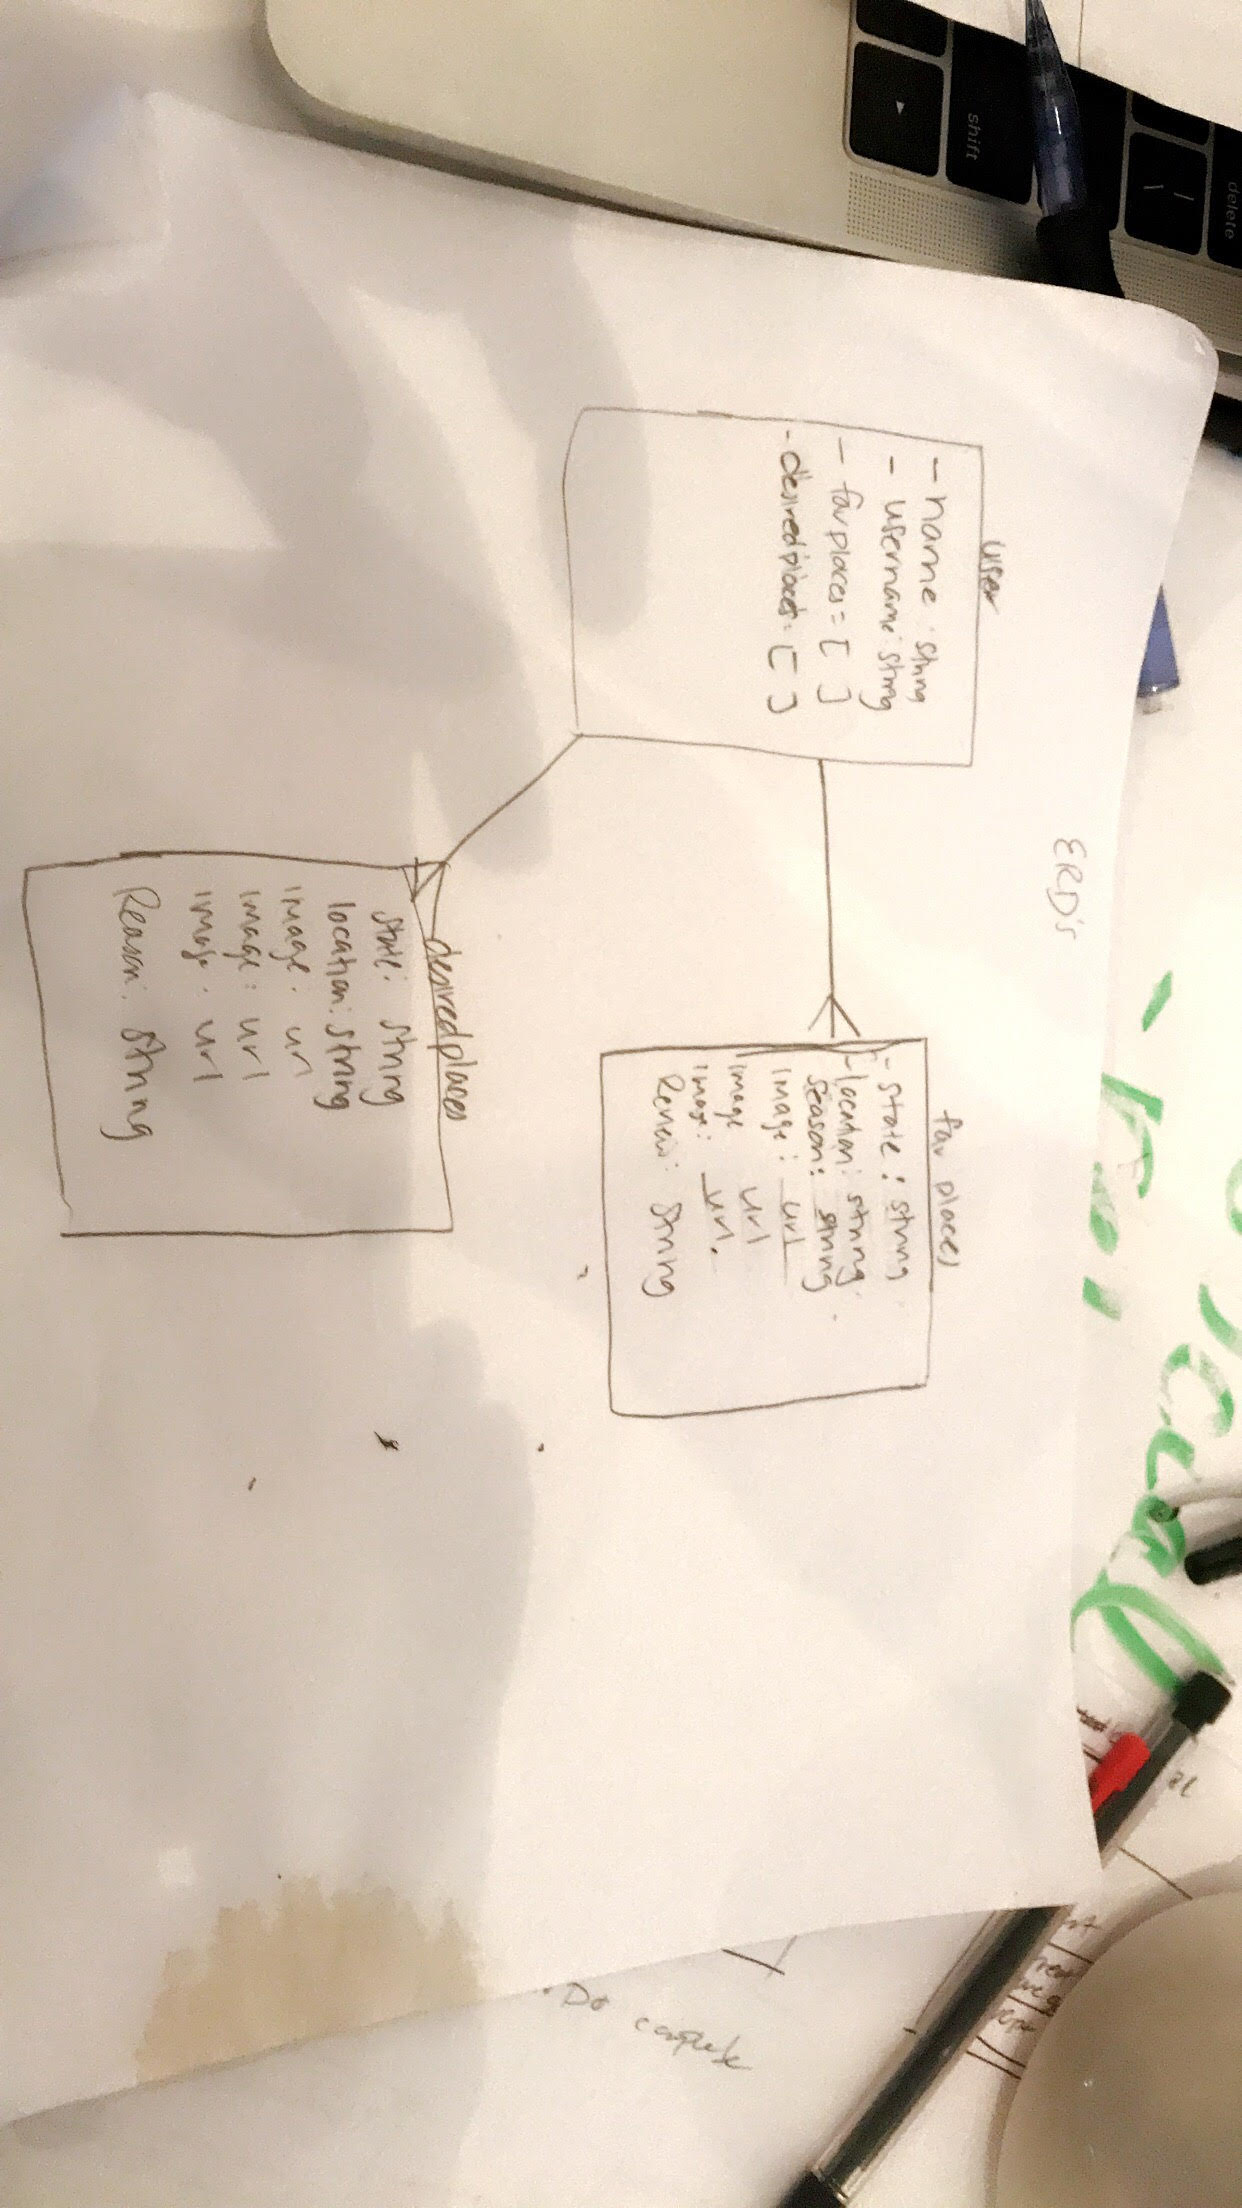 ERD's
user
- name: string
- username: string
- fav places = [ ]
- desiredplaces = [ ]
fav places
- state: string
- location: string
season: string
image: url
image url
image: url.
Review: string
desiredplaces
state: string
location: string
image: url
image: url
image: url
Reason: string
shift
delete
· Do complete